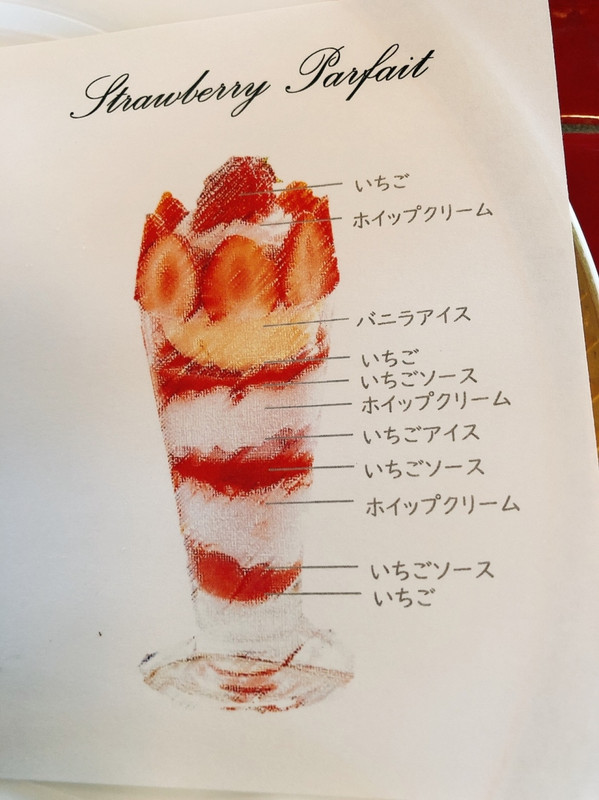 Strawberry Parfait
いちご
ホイップクリーム
バニラアイス
いちご
いちごソース
ホイップクリーム
いちごアイス
いちごソース
ホイップクリーム
いちごソース
いちご